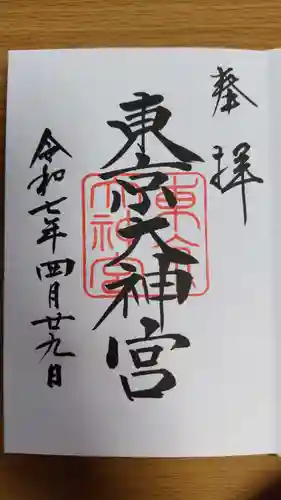 奉拝
東京大神宮
令和七年四月廿九日
東京大神宮